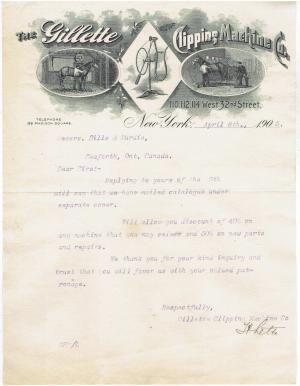 The Gillette Clipping Machine Co.
110, 112, 114 West 32nd Street.
TELEPHONE
MADISON SQUARE.
New York, April 8th, 190
Messrs. Mills &
Seaforth, Ont, Canada.
Dear Sirs:-
Replying to yours of the 5th
will say that we have mailed catalogue under
separate cover.
Will allow you discount of 40% on
any machine that you may select and 50% on new parts
and repairs.
We thank you for your kind inquiry and
trust that you will favor us with your valued pat-
ronage.
Respectfully,
Gillette Clipping Machine Co